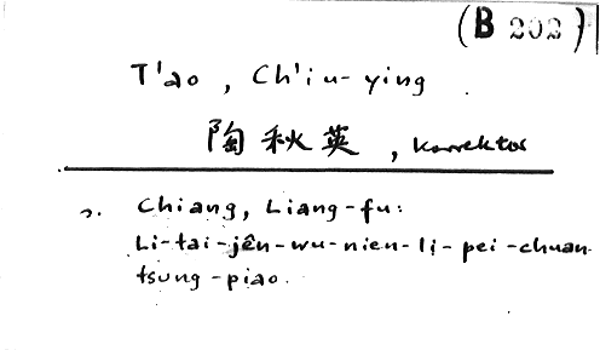 (B 202)
T'ao, Ch'iu-ying
陶秋英, Korrektor
s. Chiang, Liang-fu:
Li-tai-jên-wu-nien-li-pei-chuan-
tsung-piao.